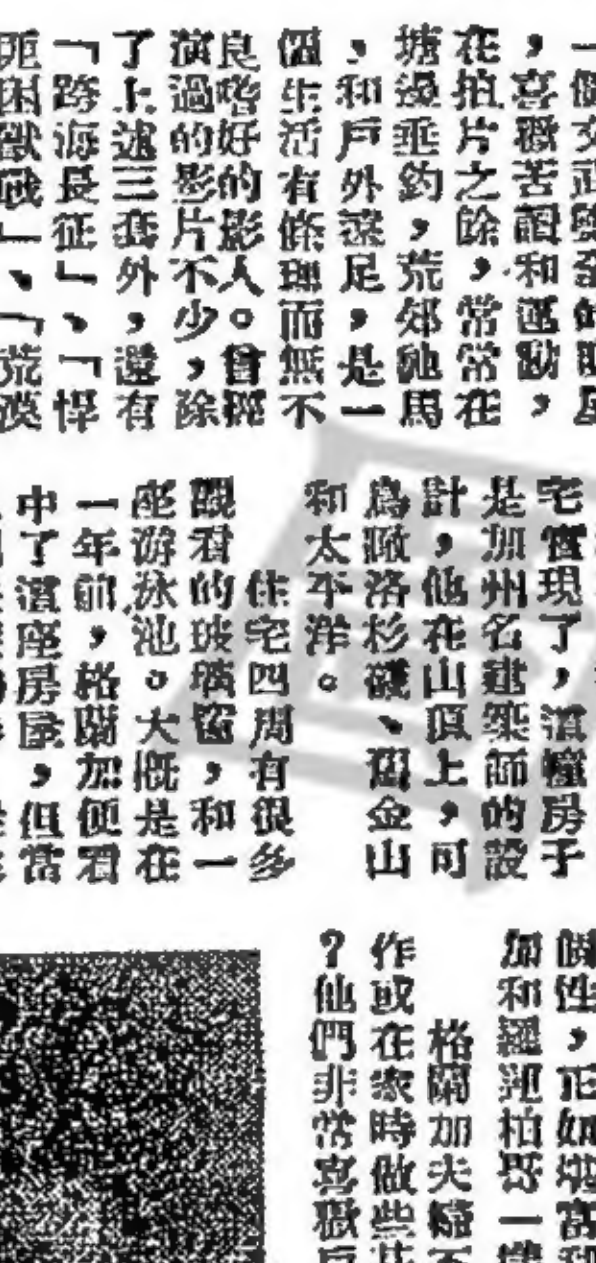 一個文武雙全的明星
，喜歡苦讀和運動，
在拍片之餘，常常在
塘邊垂釣，荒郊馳馬
，和戶外遠足，是一
個生活有條理而無不
良嗜好的影人。曾經
演過的影片不少，除
了上述三套外，還有
「跨海長征」、「悍
匪困獸戰」、「荒漠
宅實現了，這幢房子
是加州名建築師的設
計，他在山頂上，可
鳥瞰洛杉磯、舊金山
和太平洋。
住宅四周有很多
觀看的玻璃窗，和一
座游泳池。大概是在
一年前，格蘭加便看
中了這座房屋，但當
個性，正如
加和羅柏一
格蘭加夫婦不
作或在家時做些甚
？他們非常喜歡戶